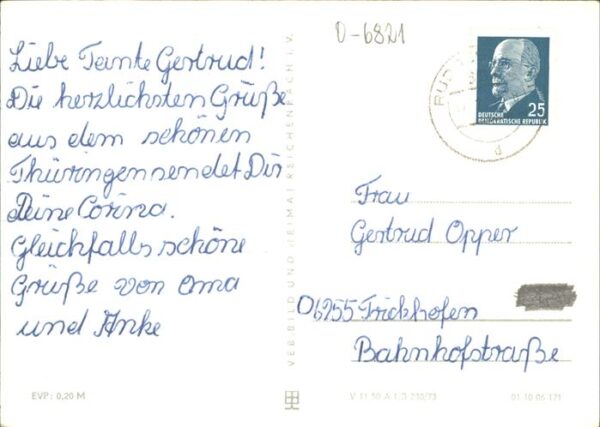 Liebe Tante Gertrud!
Die herzlichsten Grüße
aus dem schönen
Thüringen sendet Dir
Deine Corina.
Gleichfalls schöne
Grüße von Oma
und Anke
EVP: 0,20 M
VEB BILD UND HEIMAT REICHENBACH I. V.
D-6821
25
DEUTSCHE
DEMOKRATISCHE REPUBLIK
Frau
Gertrud Opper
06255 Frickhofen
Bahnhofstraße
01 10 06 171